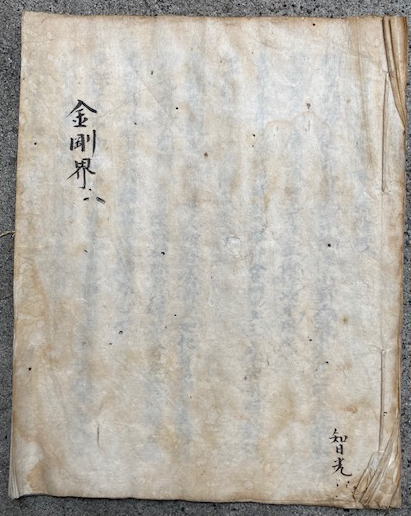 金剛界
智光